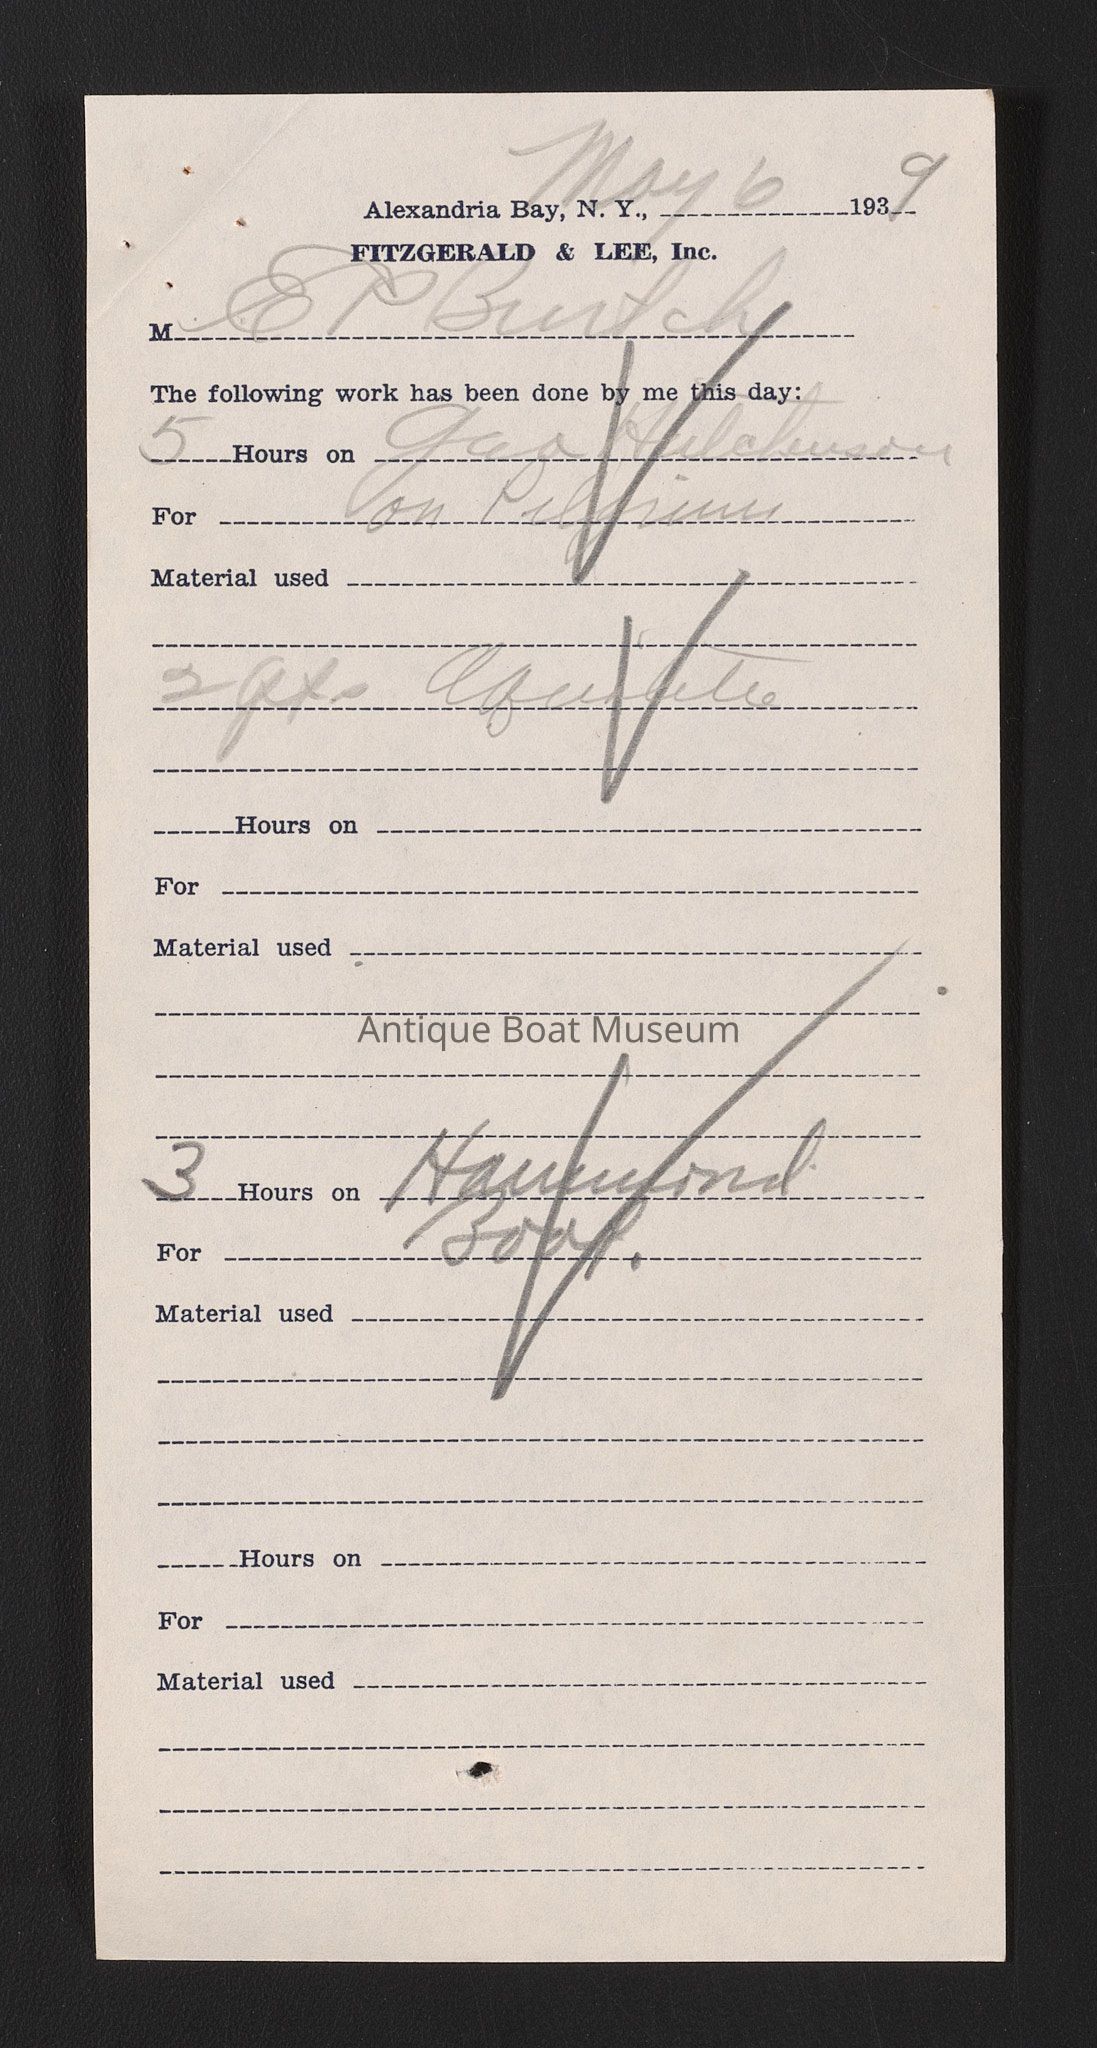 May 6 9
Alexandria Bay, N. Y., 193
FITZGERALD & LEE, Inc.
M E P Burtch
The following work has been done by me this day:
5 Hours on Geo Hutchinson
For on Pilgrim
Material used
2 qts
Hours on
For
Material used
Antique Boat Museum
3 Hours on Hammond
For Boat.
Material used
Hours on
For
Material used